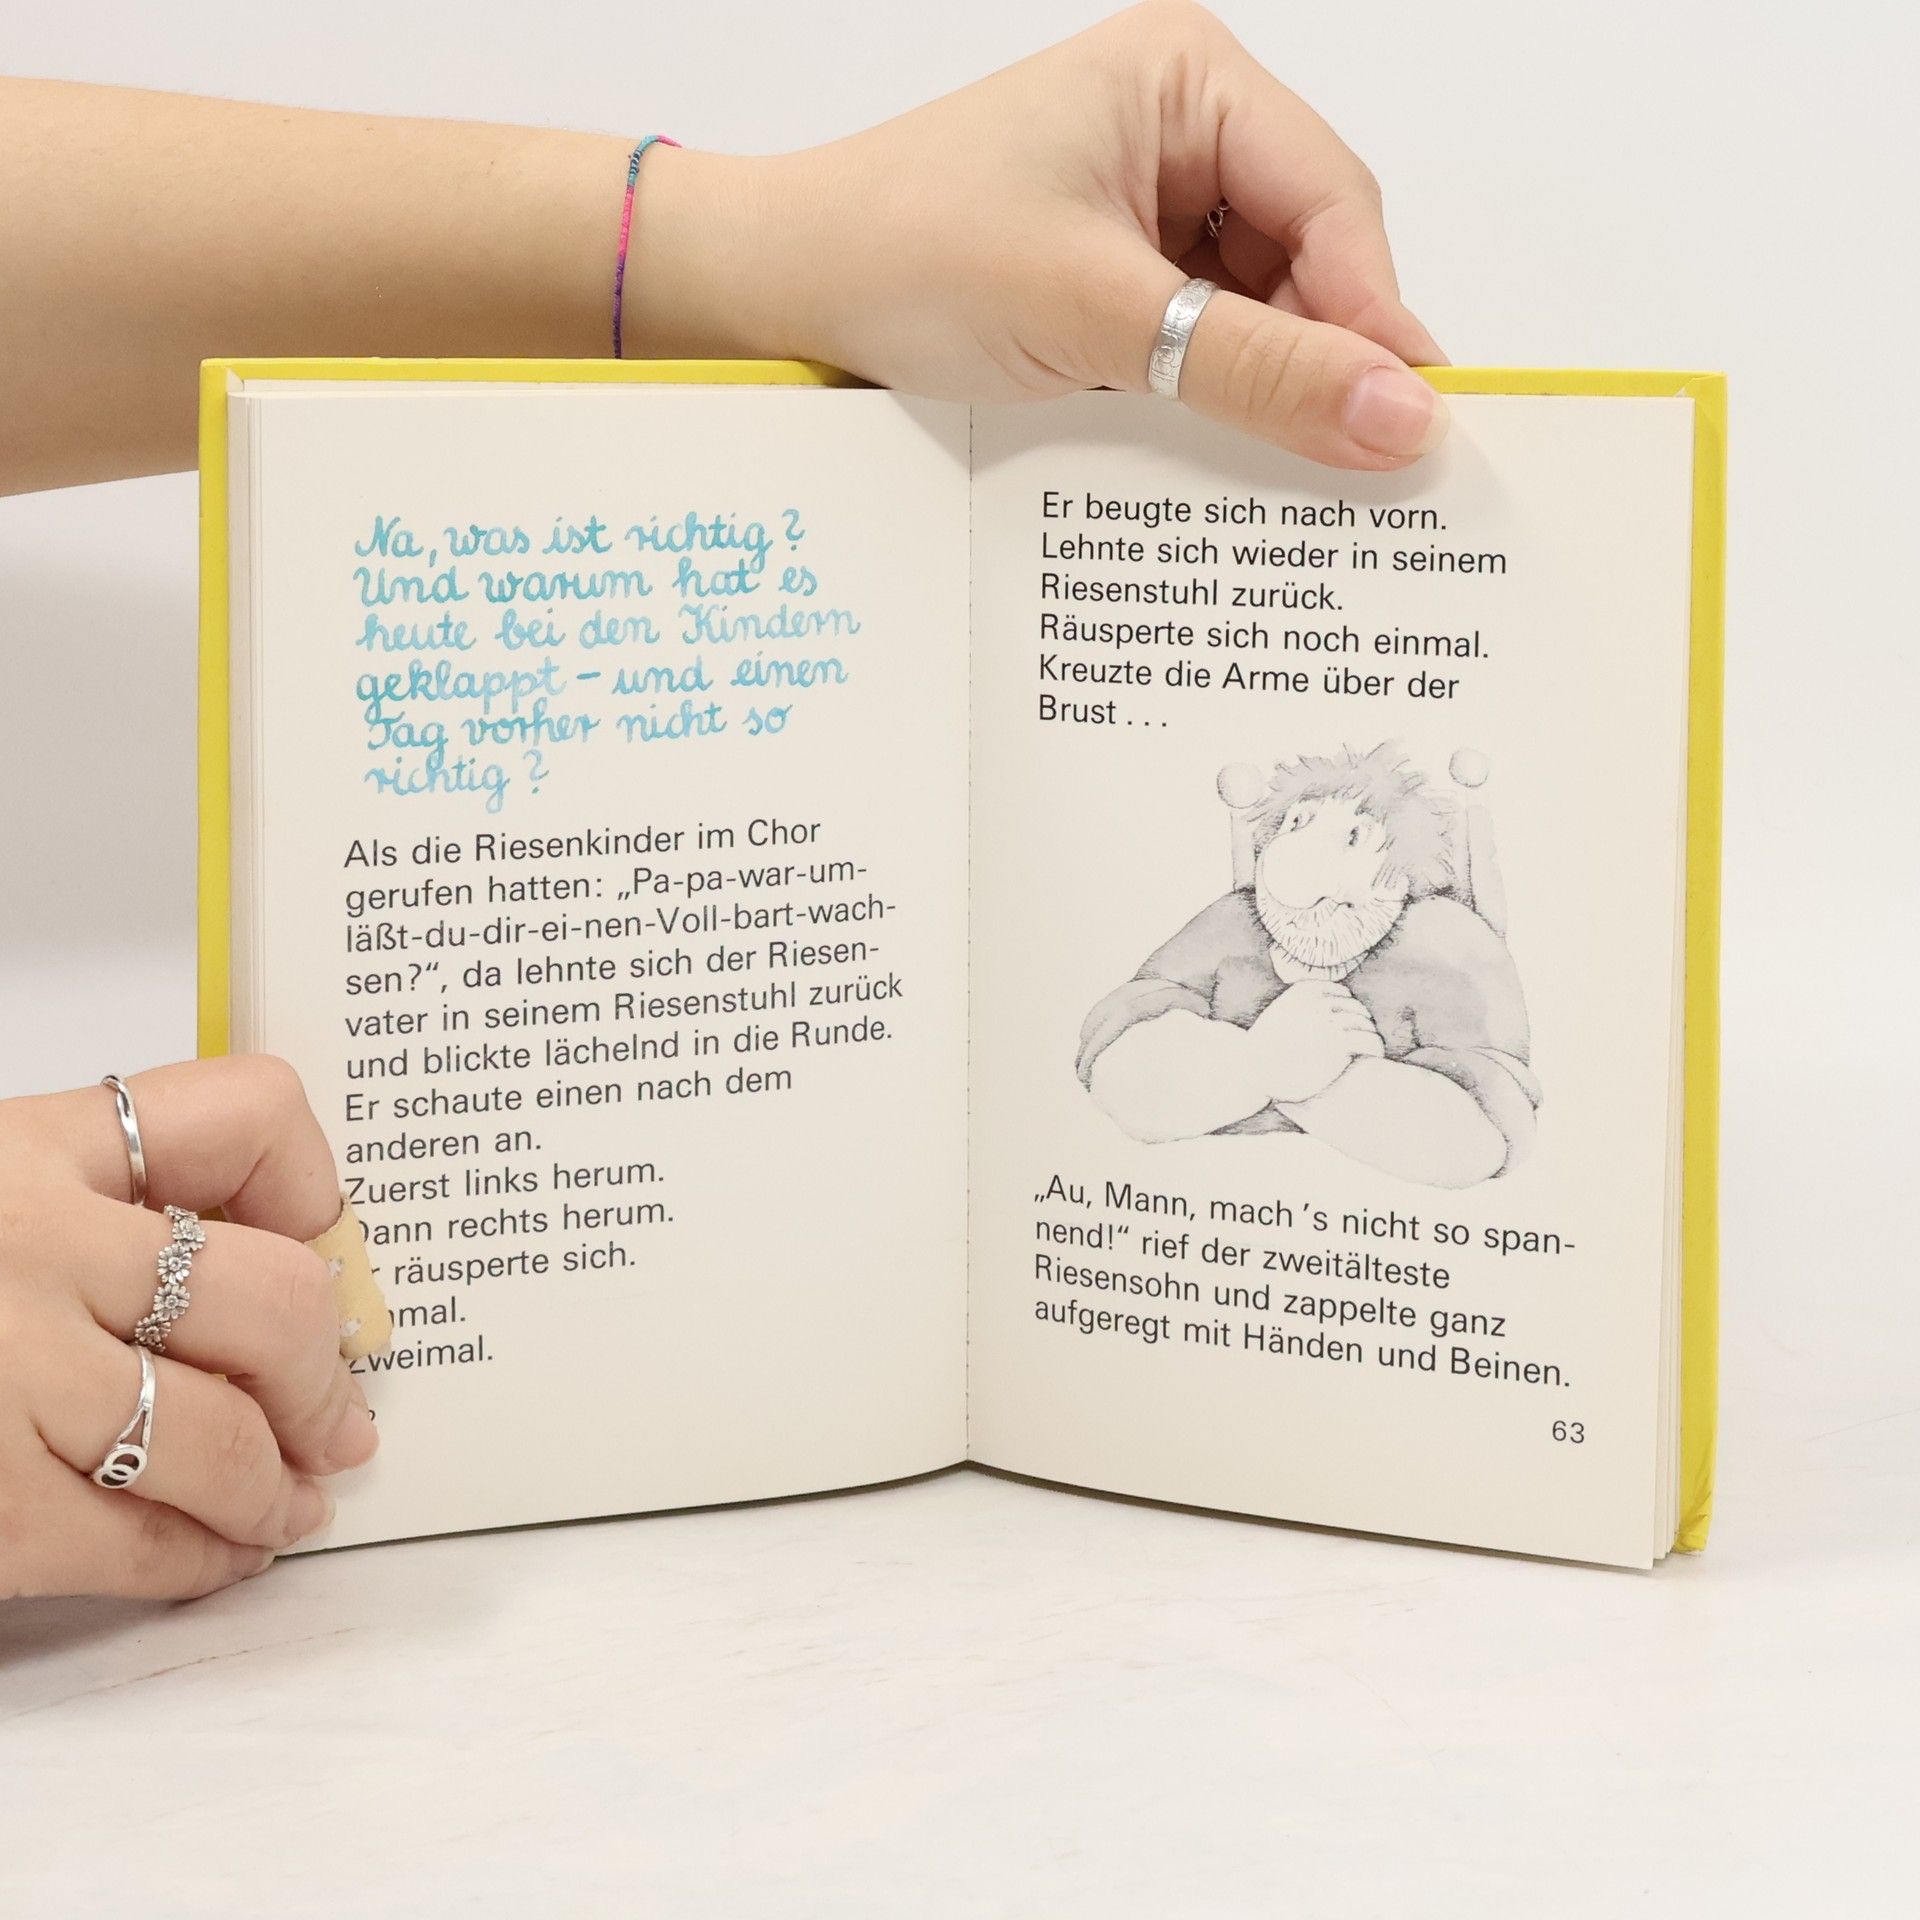 Na, was ist richtig?
Und warum hat es
heute bei den Kindern
geklappt – und einen
Tag vorher nicht so
richtig?
Als die Riesenkinder im Chor
gerufen hatten: „Pa-pa-war-um-
läßt-du-dir-ei-nen-Voll-bart-wach-
sen?“, da lehnte sich der Riesen-
vater in seinem Riesenstuhl zurück
und blickte lächelnd in die Runde.
Er schaute einen nach dem
anderen an.
Zuerst links herum.
Dann rechts herum.
räusperte sich.
Zweimal.
Er beugte sich nach vorn.
Lehnte sich wieder in seinem
Riesenstuhl zurück.
Räusperte sich noch einmal.
Kreuzte die Arme über der
Brust . . .
„Au, Mann, mach’s nicht so span-
nend!“ rief der zweitälteste
Riesensohn und zappelte ganz
aufgeregt mit Händen und Beinen.
63